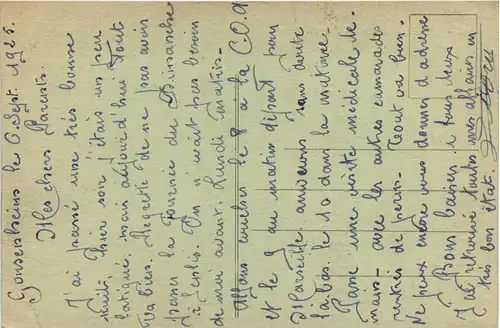 le 6 Sept. 1925.
Mes chers Parents.
J'ai passé une très bonne
nuit. Hier soir j'étais un peu
fatigué, mais aujourd'hui tout
va bien. Regrette de ne pas avoir
la journée du Dimanche
On n'avait pas besoin
de me avant Lundi matin.
Allons coucher le 8 à la CO.A
et le 9 au matin départ pour
Marseille. arriverons sans doute
là-bas le 10 dans la matinée.
Passe une visite médicale de-
main avec les autres camarades
rentrés de perm. Tout va bien.
Ne peux encore vous donner d'adresse
Bons baisers à tous deux
J'ai retrouvé toutes mes affaires en
très bon état.